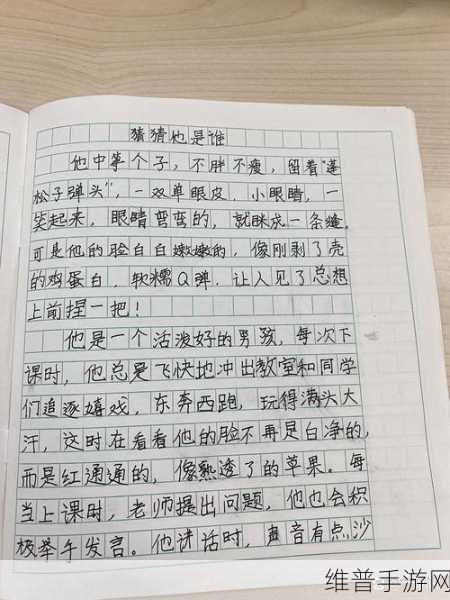 猜猜他是谁
他中等个子，不胖不瘦，留着“蓬
松子弹头”，一双单眼皮，小眼睛，一
笑起来，眼睛弯弯的，就眯成一条缝。
可是他的脸白白嫩嫩的，像刚剥了壳
的鸡蛋白，软糯Q弹，让人见了总想
上前捏一把！
他是一个活泼好的男孩，每次下
课时，他总爱飞快地冲出教室和同学
们追逐嬉戏，东奔西跑，玩得满头大
汗，这时在看看他的脸不再是白净的，
而是红通通的，像熟透了的苹果。每
当上课时，老师提出问题，他也会积
极举手发言。他讲话时，声音有点沙
维普手游网